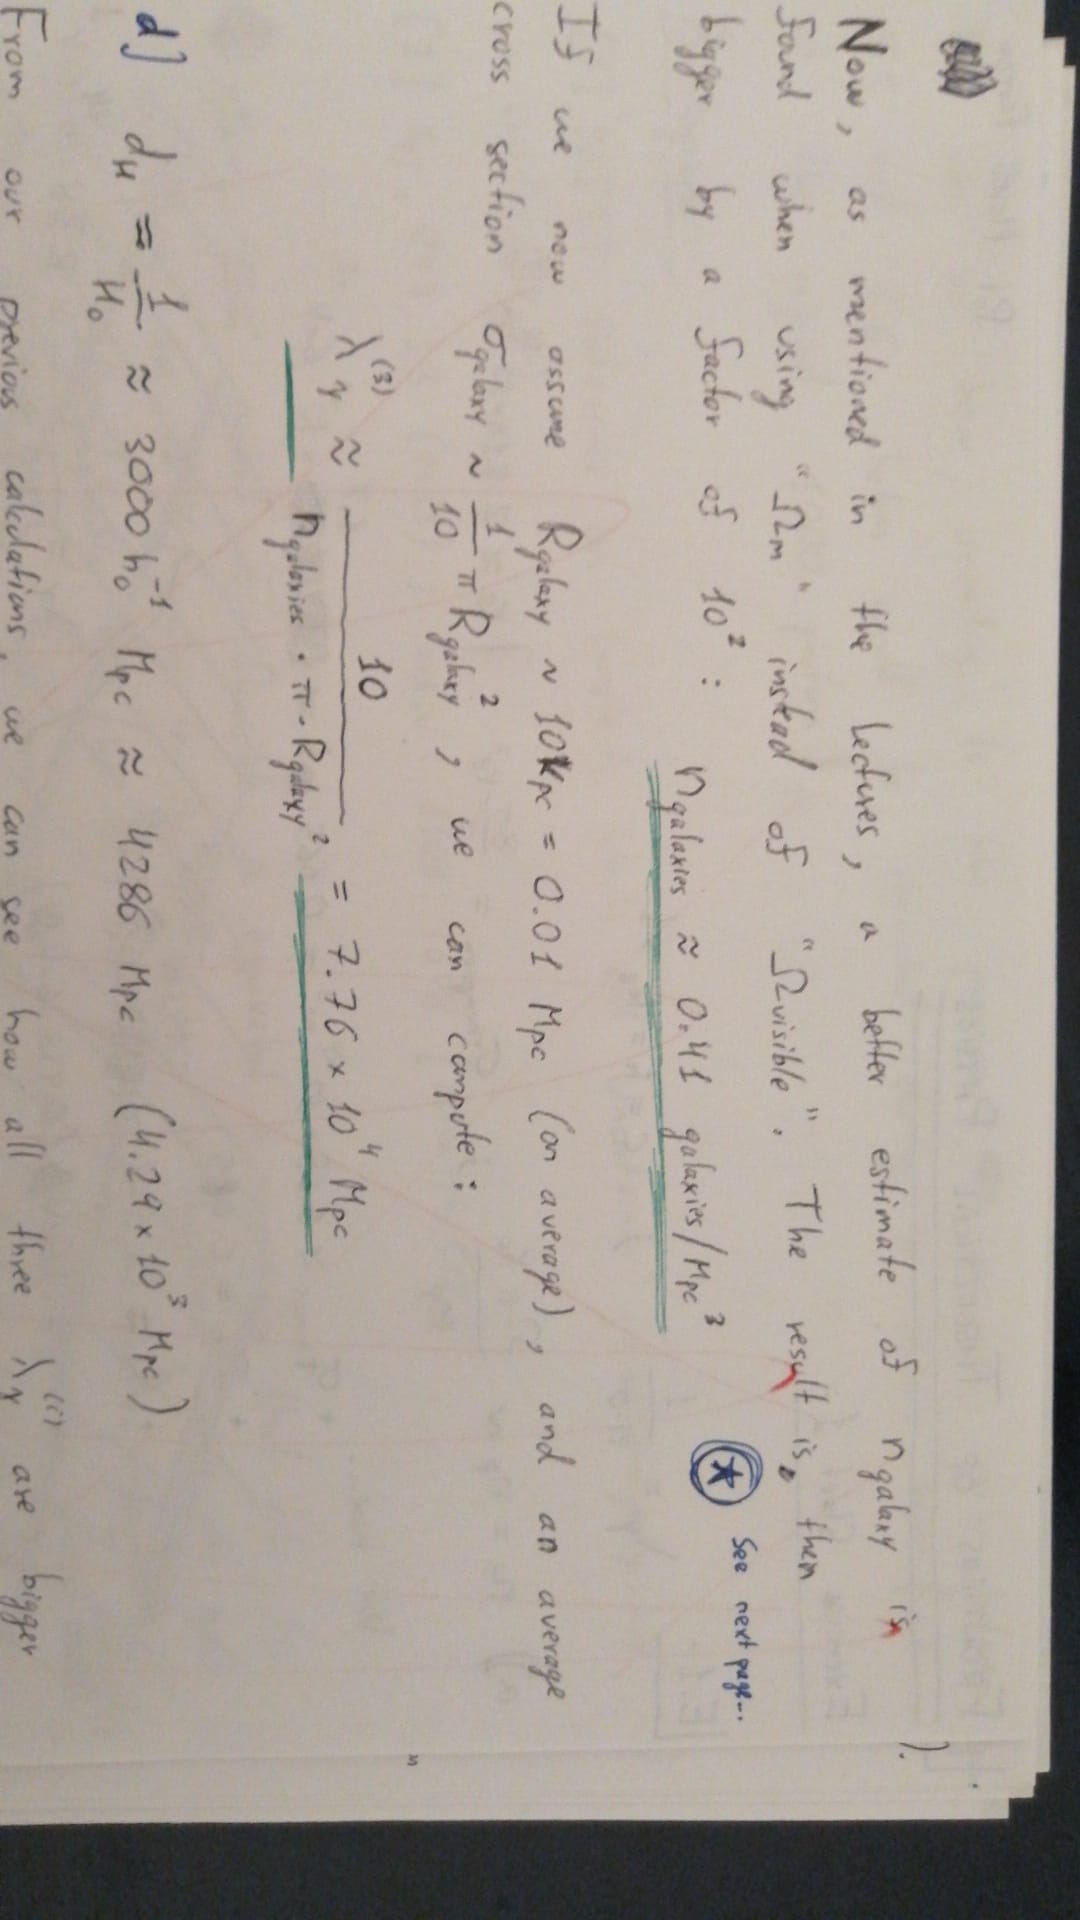 Now, as mentioned in the lectures, a better estimate of n galaxy is
found when using "Ωm" instead of "Ωvisible". The result is, then
bigger by a factor of 10² : n galaxies ≈ 0.41 galaxies/Mpc³
★ See next page...
If we now assume Rgalaxy ~ 10Kpc = 0.01 Mpc (on average), and an average
cross section σgalaxy ~ 1/10 π Rgalaxy², we can compute:
λγ⁽³⁾ ≈ 10 / (n galaxies · π · Rgalaxy²) = 7.76 × 10⁴ Mpc
d] dH = 1/H₀ ≈ 3000 h₀⁻¹ Mpc ≈ 4286 Mpc (4.29 × 10³ Mpc)
From our previous calculations, we can see how all three λγ⁽ⁱ⁾ are bigger